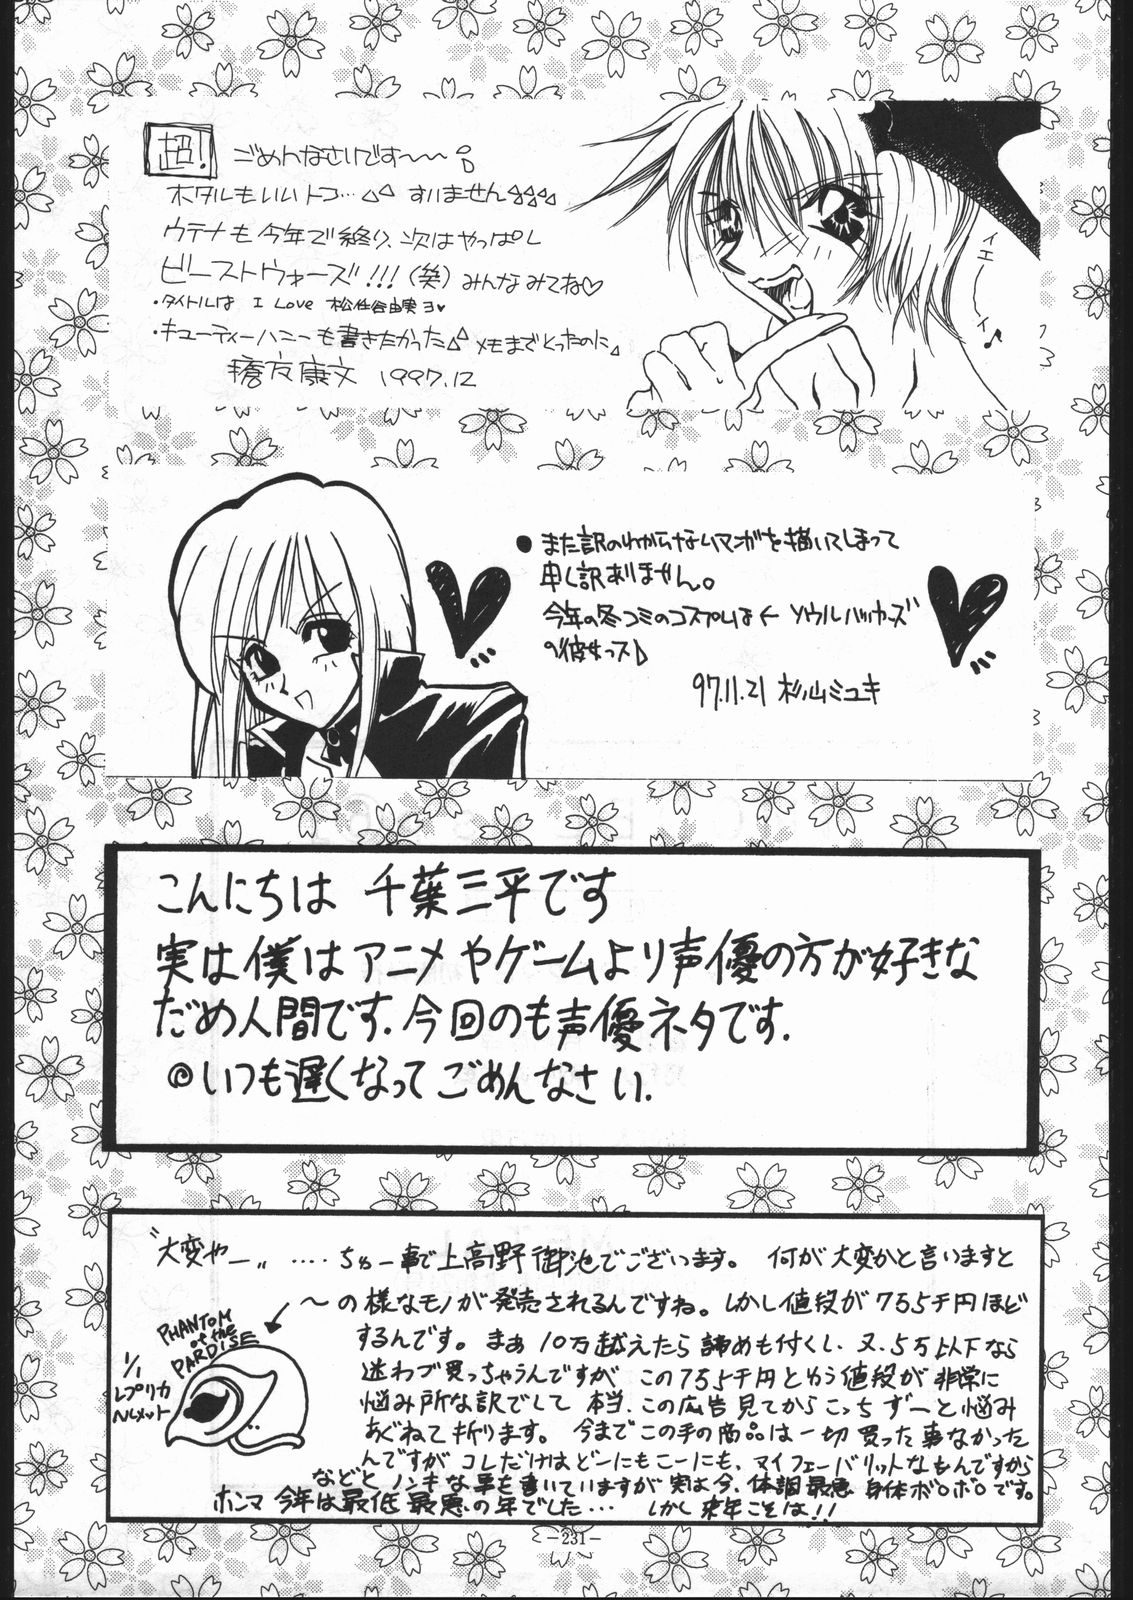 超! ごめんなさいです〜〜
ホタルもいいトコ… すいません
ウテナも今年で終り、次はやっぱし
ビーストウォーズ!!!(笑)みんなみてね♡
・タイトルは I Love 松任谷由実 ヨ♥
・キューティーハニーも書きたかった メモまでとったのに
友康文 1997.12
イエーイ♪
●また訳のわからないマンガを描いてしまって
申し訳ありません。
今年の冬コミのコスプレは← ソウルハッカーズ
の彼女っス
97.11.21 杉山ミユキ
こんにちは 千葉三平です
実は僕はアニメやゲームより声優の方が好きな
だめ人間です.今回のも声優ネタです.
◎いつも遅くなってごめんなさい.
〝大変やー〟‥‥ちゅー事で上高野御池でございます。 何が大変かと言いますと
〜の様なモノが発売されるんですね。しかし値段が7万5千円ほど
するんです。まぁ10万越えたら諦めも付くし、又、5万以下なら
迷わブ買っちゃうんですが この7万5千円とゆう値段が非常に
悩み所な訳でして 本当、この広告見てからこっちずーと悩み
あぐねて折ります。今まで この手の商品は一切買った事なかった
んですが コレだけはどーにもこーにも、マイフェーバリットなもんですから
などと ノンキな事を書いていますが 実は今、体調最悪 身体ボロボロです。
ホンマ 今年は最低最悪の年でした… しかし来年こそは!!
PHANTOM
of the
PARDISE
1/1
レプリカ
ヘルメット
-231-